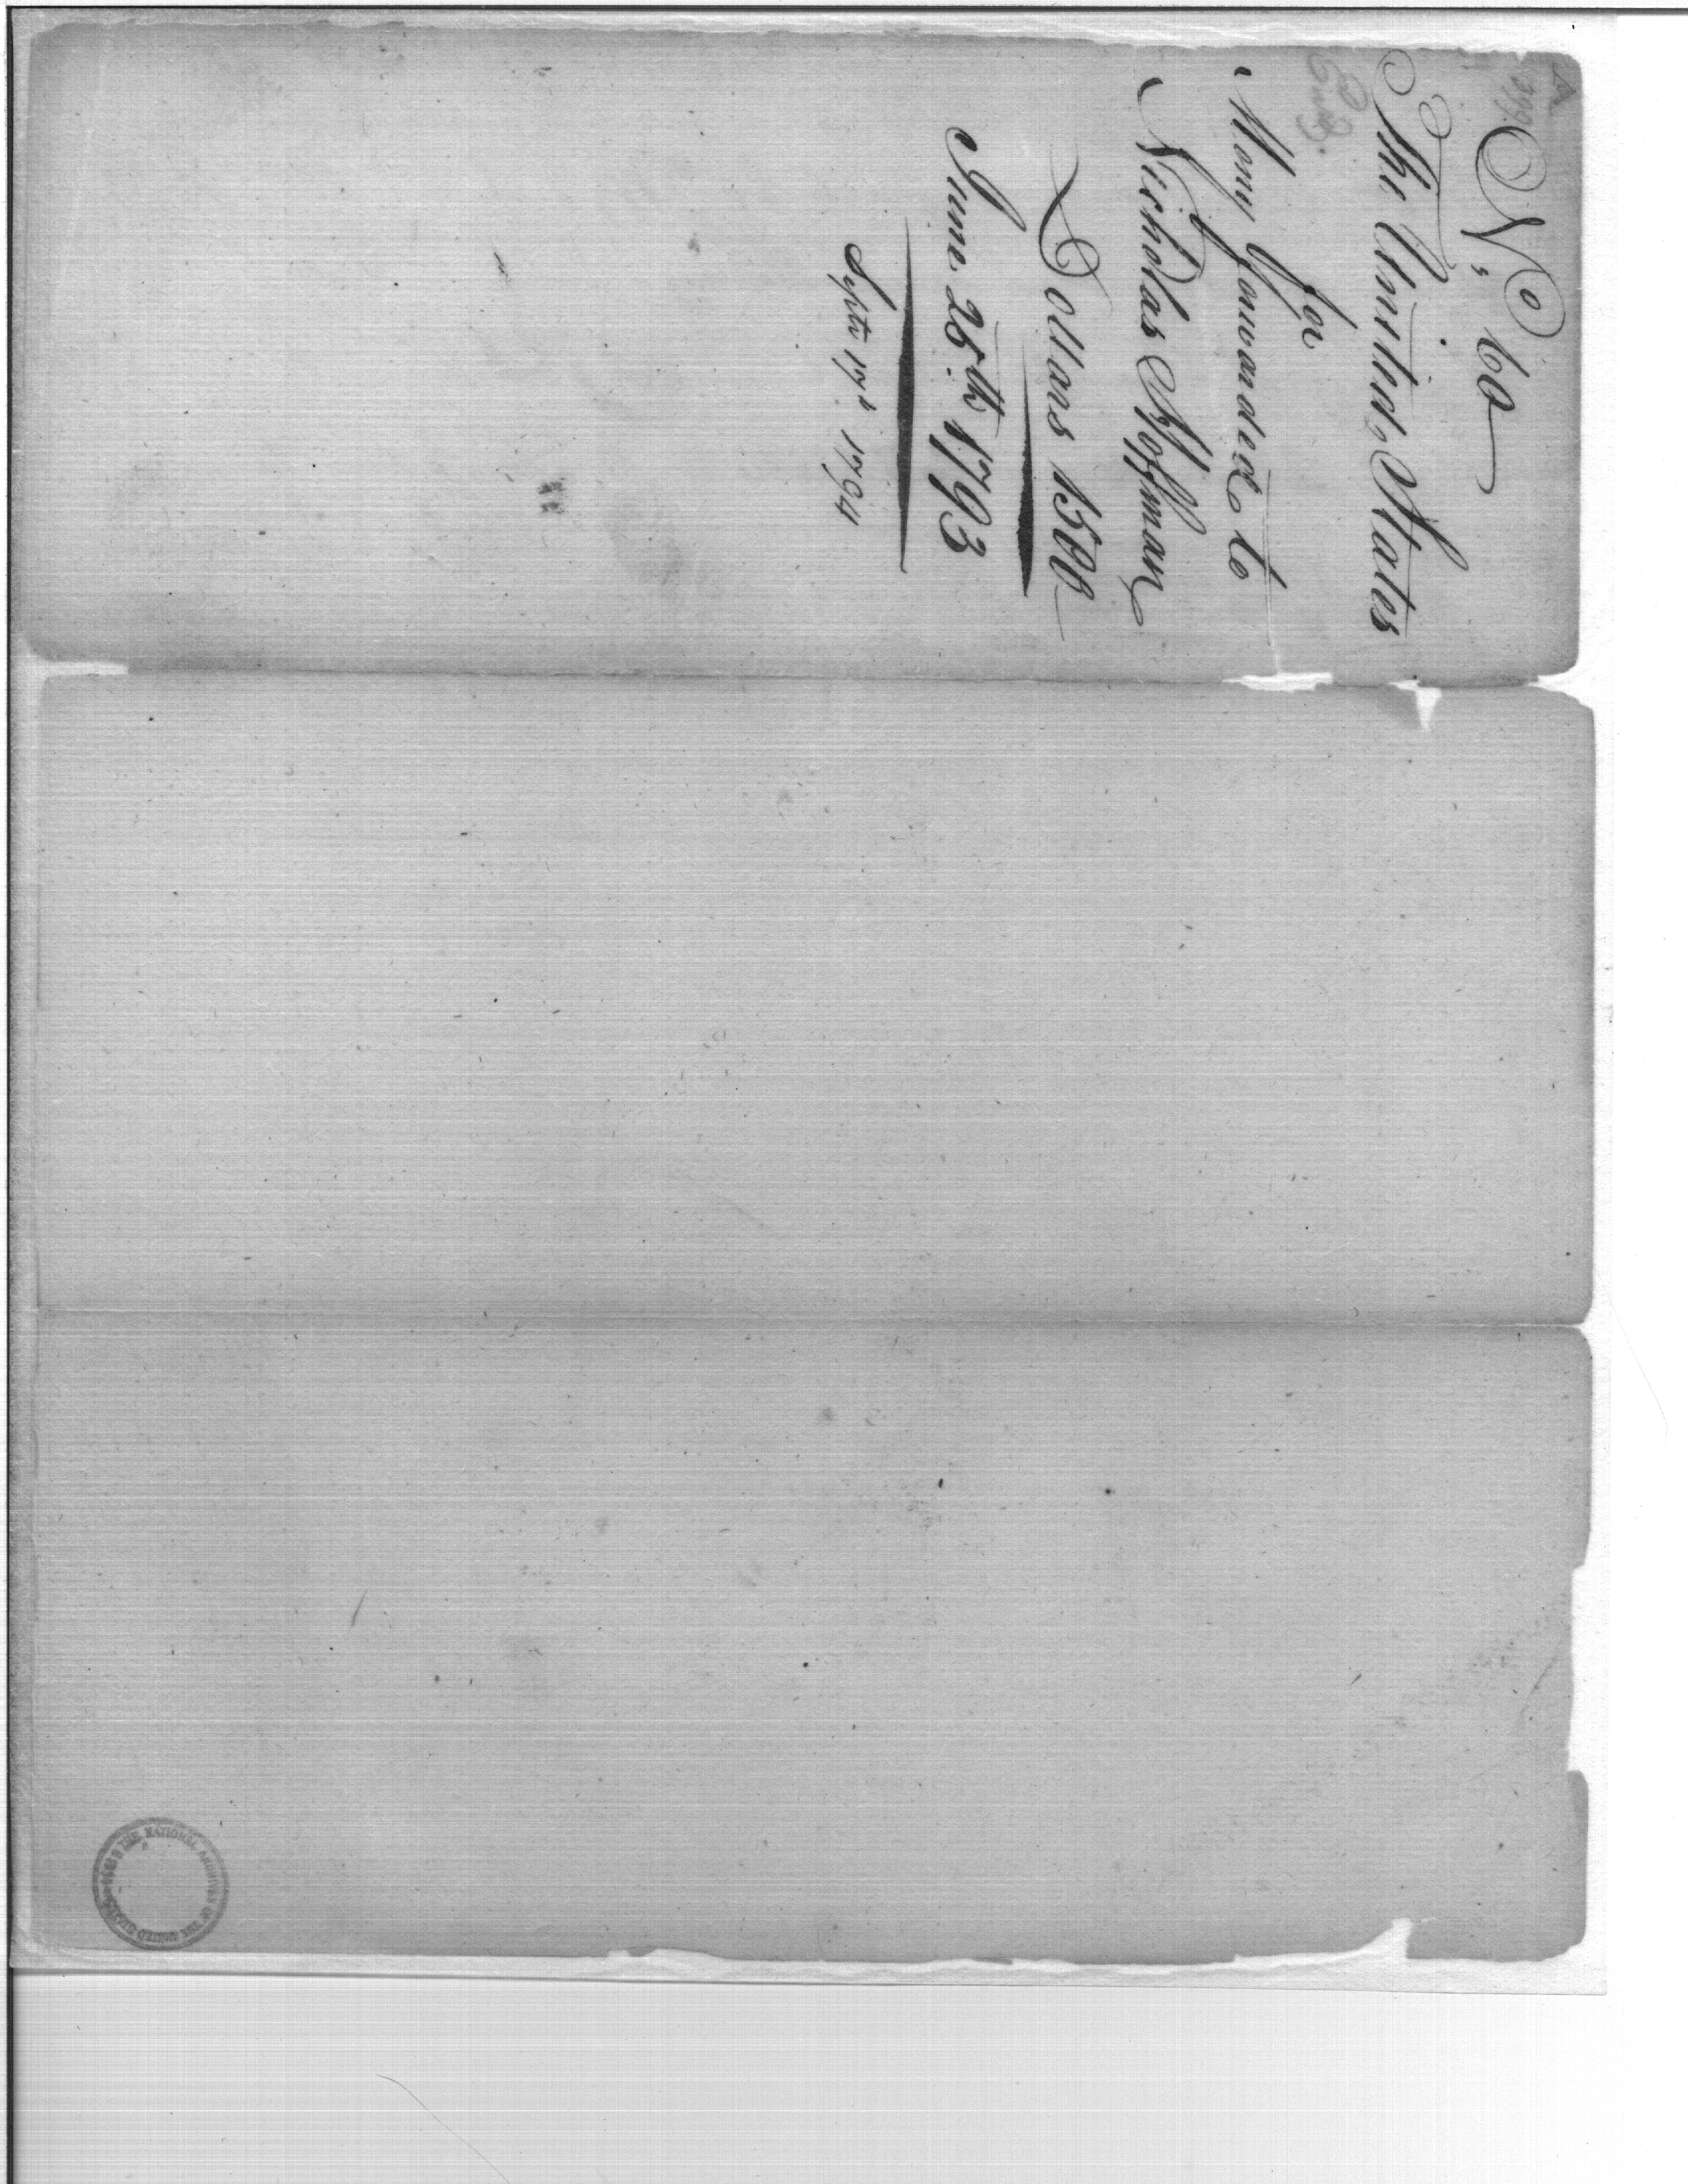 No, 60
The Unnited States
for
Mony forwarded to
Nicholas Hoffman
Dollars 1500
Iune 25th 1793
Septr 17th 1794
THE NATIONAL ARCHIVES OF THE UNITED STATES